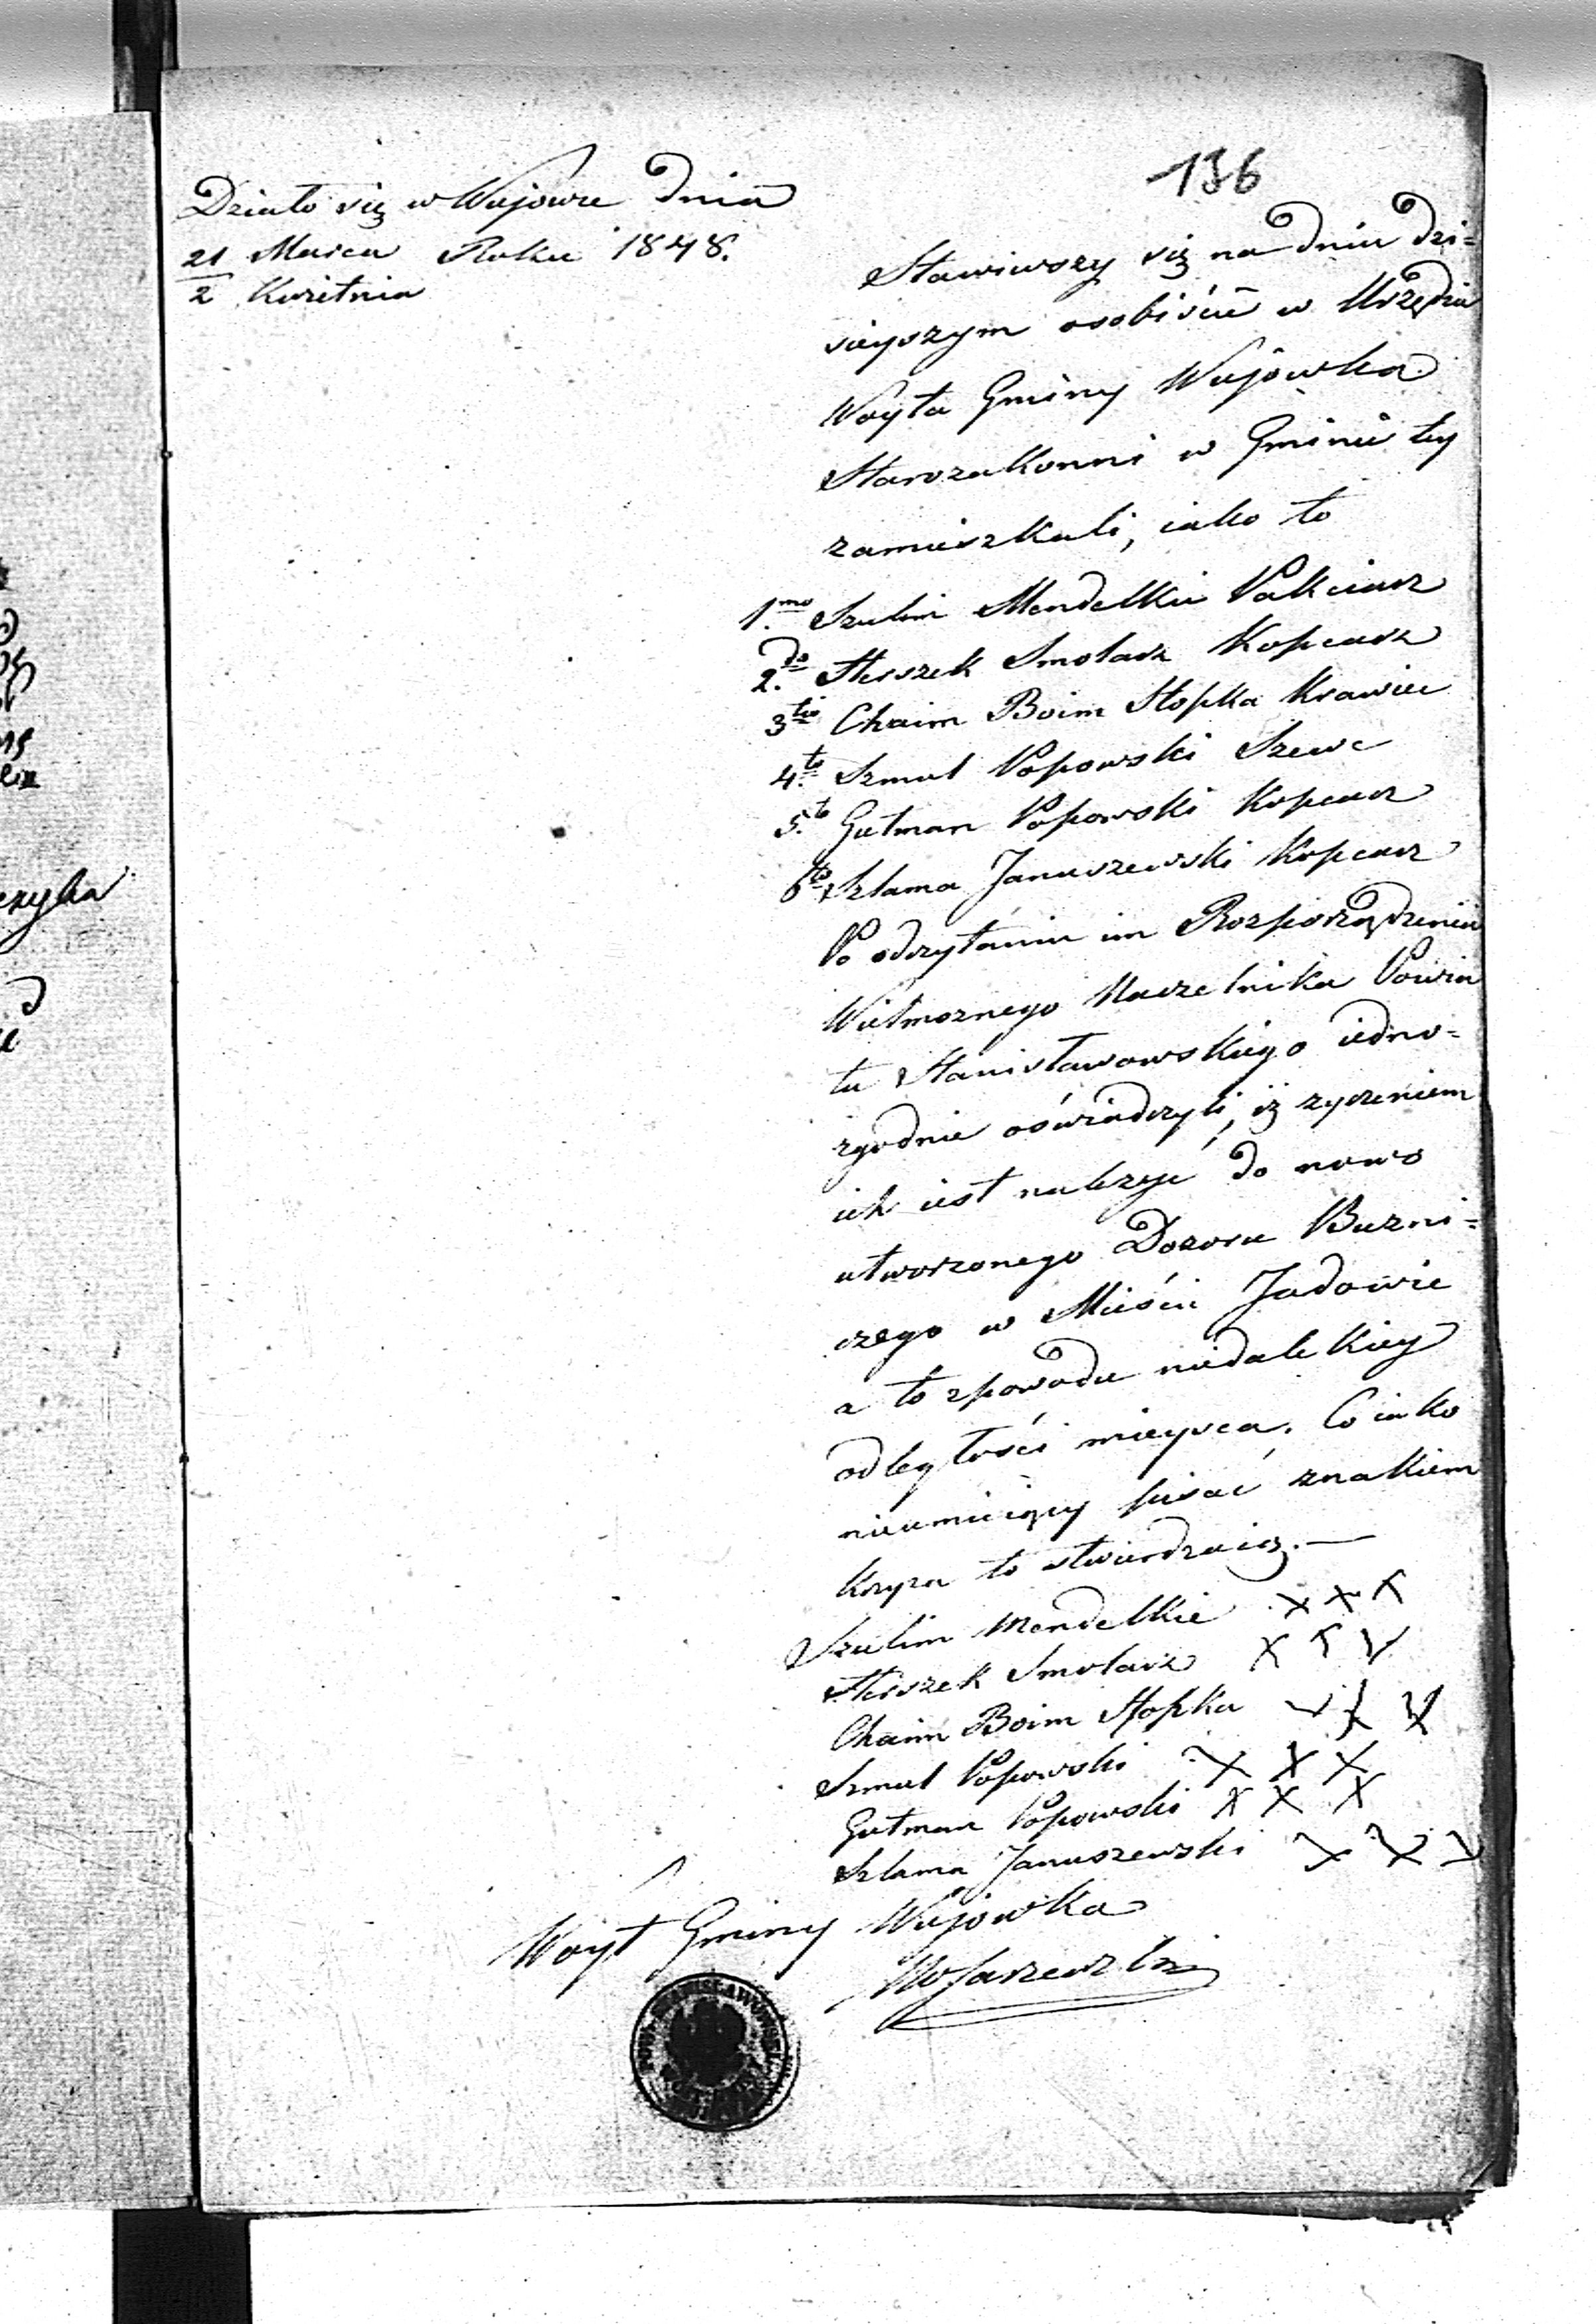 136
Działo się w Wujowce dnia
21 Marca Roku 1848.
2 Kwietnia
Stawiwszy się na dniu dzi=
sieyszym osobiście w Urzędzie
Woyta Gminy Wujówka
Starozakonni w Gminie tey
zamieszkali, iako to
1.mo Szulim Mendelkie Pakciarz
2.do Herszek Smolarz Kopcarz
3tio Chaim Boim Stopka Krawiec
4.to Szmul Popowski Szewc
5.to Gutman Popowski Kopcarz
6to Szlama Januszewski Kopcarz
Po odczytaniu im Rozporządzenia
Wielmoznego Naczelnika Powia
tu Stanisławowskiego iedno=
zgodnie oświadczyli, iż zyczeniem
ich iest należyć do nowo
utworzonego Dozoru Buzni=
czego w Mieście Jadowie
a to zpowodu niedalekiey
odległości mieysca. Co iako
nieumieiący pisać znakiem
Krzyza to stwierdzaią.—
Szulim Mendelkie X X X
Herszek Smolarz X X X
Chaim Boim Stopka X X X
Szmul Popowski X X X
Gutman Popowski X X X
Szlama Januszewski X X X
Woyt Gminy Wujowka